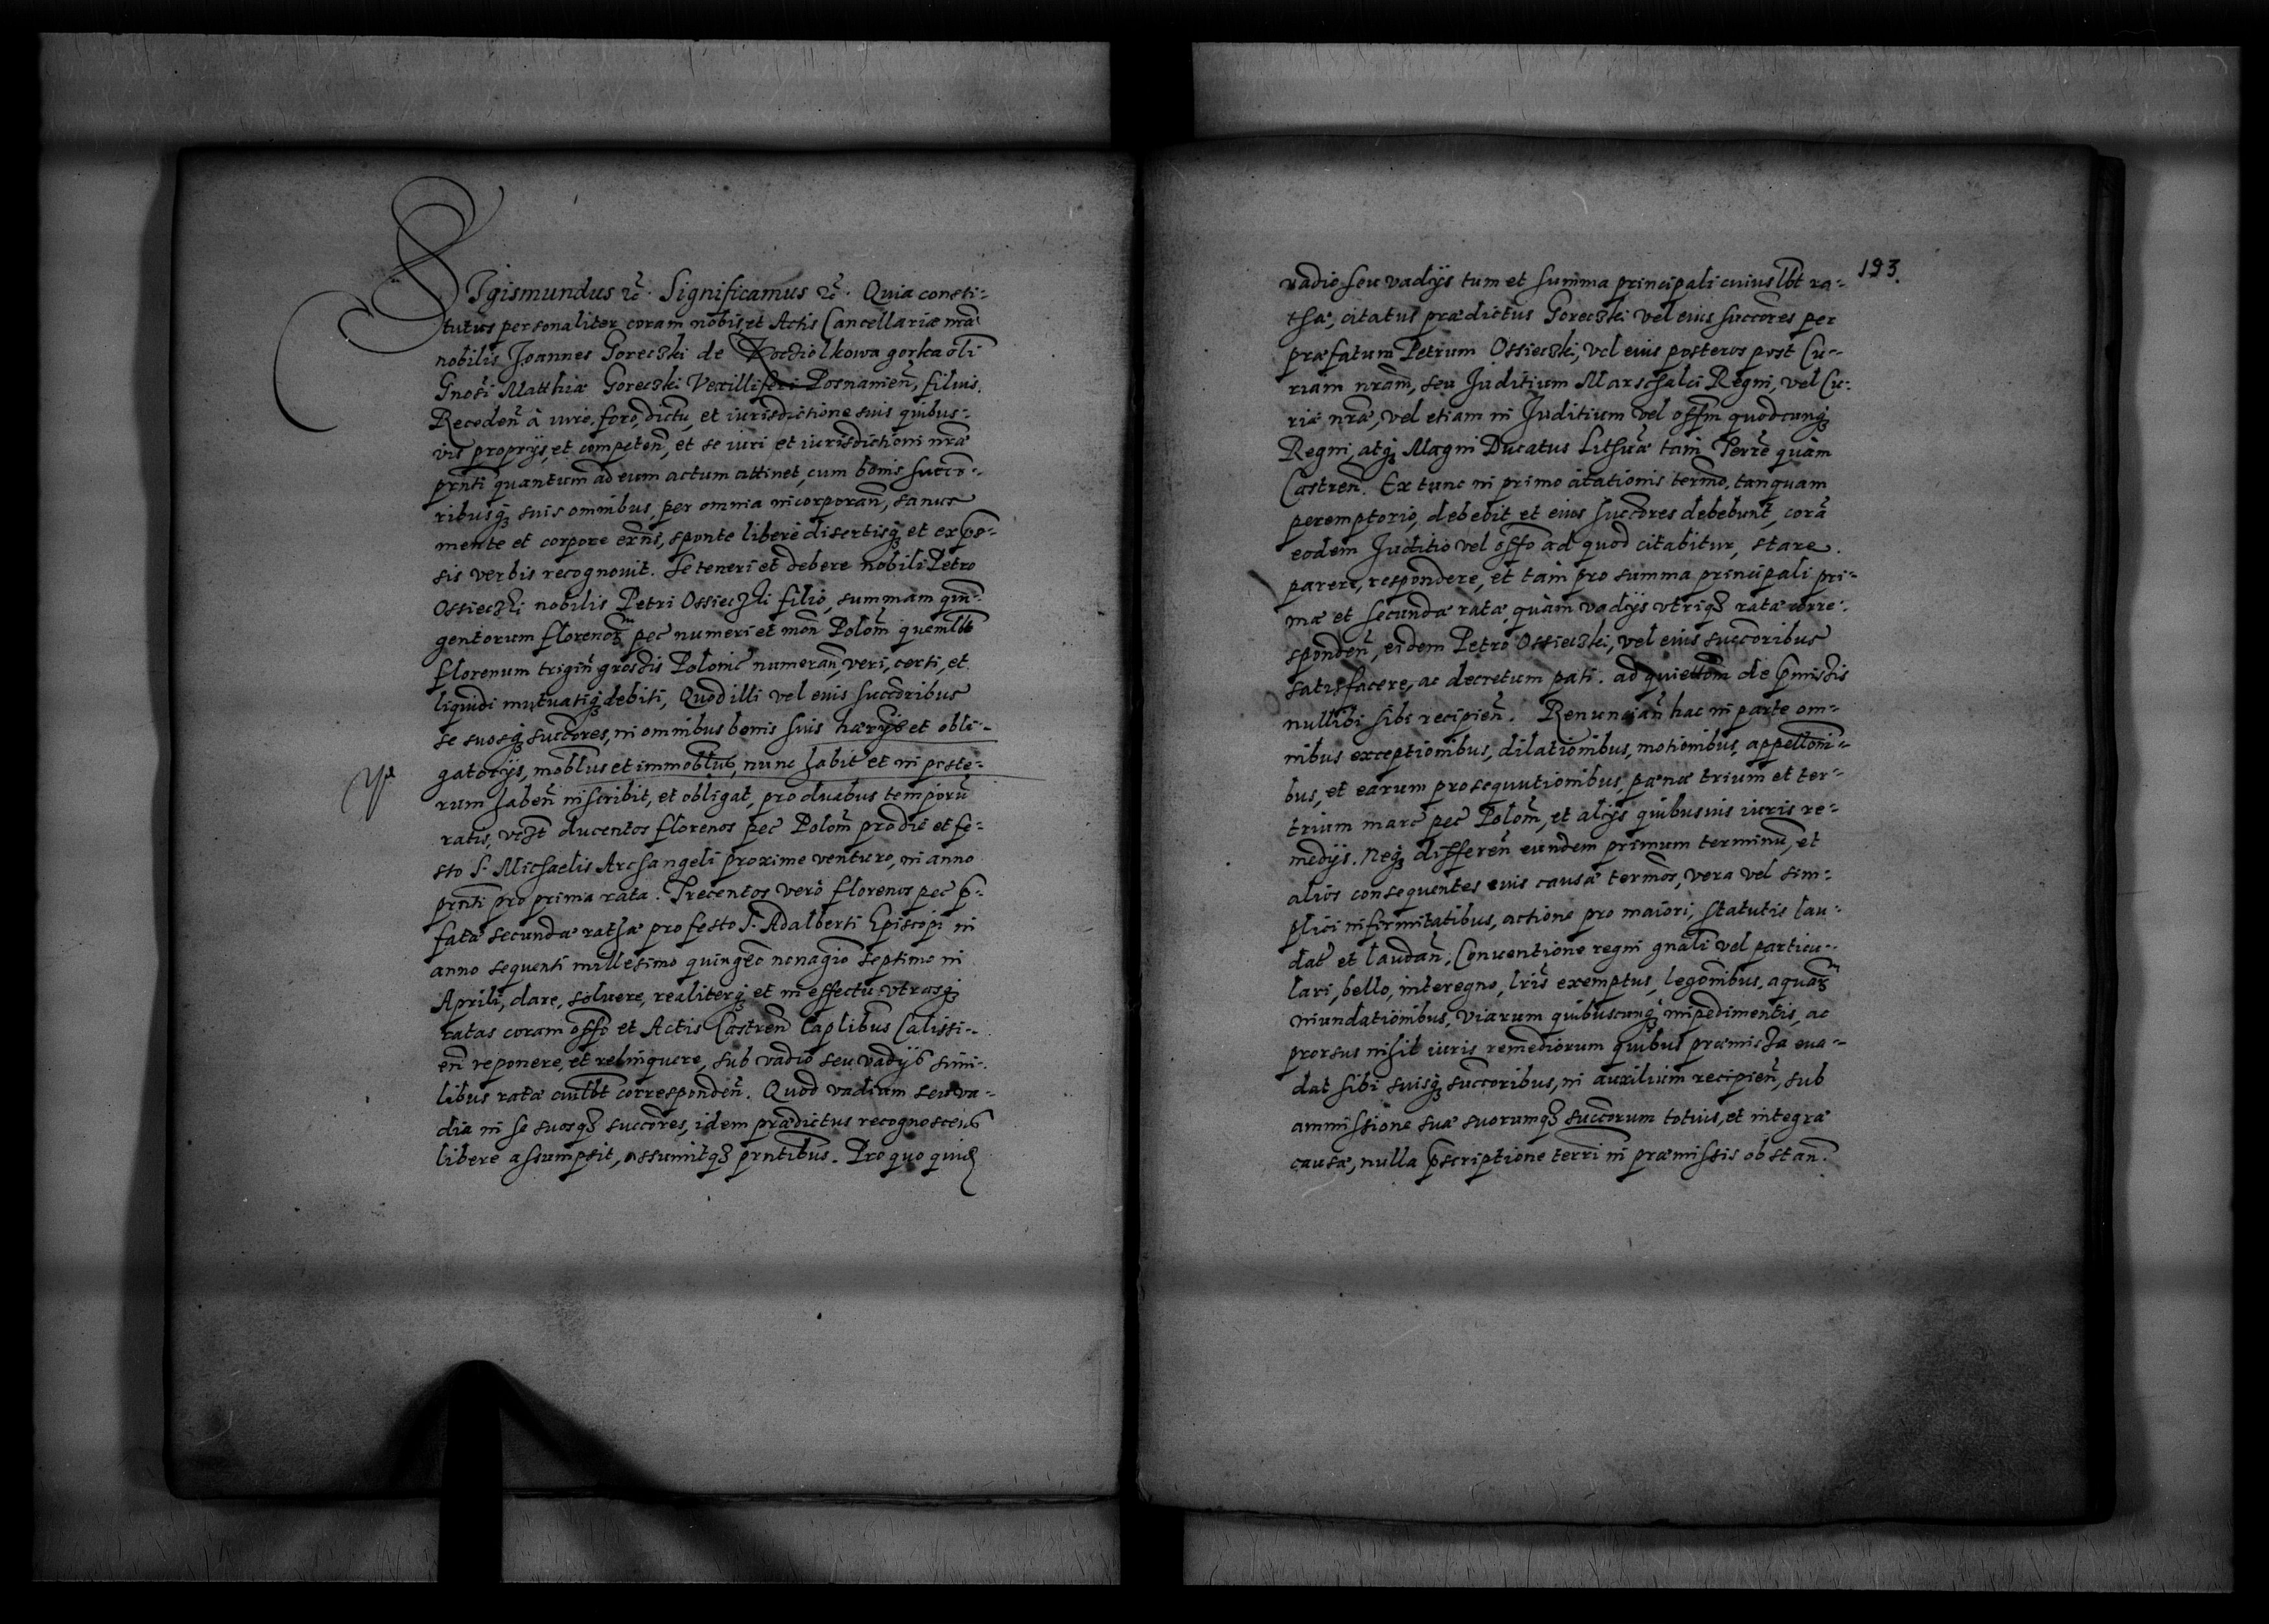 SIgismundus ꝛc̃. Significamus ꝛc̃. Quia consti-
tutus personaliter coram nobis, et Actis Cancellariæ nr̃æ
nobilis Joannes Goreczki de Kocziolkowa gorka oli
Gnosi Matthiæ Goreczki Vexilliferi Posnanien̄, filius.
Receden̄ à iure, foro, dictu, et iurisdictione suis quibus-
vis proprijs, et competen̄, et se iuri et iurisdictioni nr̃æ
prn̄ti quantum ad eum actum attinet, cum bonis succo-
ribusq́ suis omnibus, per omnia incorporan̄, sanus
mente et corpore exn̄s, sponte liberè disertisq́ et expres-
sis verbis recognouit. Se teneri et debere nobili Petro
Ossieczki nobilis Petri Ossieczki filio, summam quin-
gentorum florenoꝝ pec̄ numeri et mon̄ Polon̄ quemlbt
florenum trigin̄ grossis Polonic̄ numeran̄, veri, certi, et
liquidi mutuatiq́ debiti, Quod illi vel eius succoribus
se suosq́ succores, in omnibus bonis suis hærijs et obli-
gatorijs, moblbus et immoblbus, nunc habit̄ et in poste-
rum haben̄ inscribit, et obligat, pro duabus temporū
ratis, vczt ducentos florenos pec̄ Polon̄ pro die et fe-
sto S. Michaelis Archangeli proxime venturo, in anno
prn̄ti pro prima rata. Trecentos verò florenos pec̄ p̄-
fatæ secundæ rathæ pro festo S. Adalberti Episcopi in
anno sequenti millesimo quingeo nonagio septimo in
Aprili, dare, soluere, realiterq́ et in effectu vtrasq́
ratas coram offo et Actis Castren̄ Caplibus Calissi-
en̄ reponere, et relinquere, sub vadio seu vadijs simi-
libus ratæ cuilbt corresponden̄. Quod vadium seu va-
dia in se suosq́ succores, idem prædictus recognoscens
libere assumpsit, assumitq́ prn̄tibus. Pro quo quid̄
193.
vadio seu vadijs tum et summa principali cuiuslbt ra-
thæ, citatus prædictus Goreczki vel eius succores per
præfatum Petrum Ossieczki, vel eius posteros post Cu-
riam nr̃am, seu Juditium Marschalci Regni, vel Cu-
riæ nr̃æ, vel etiam in Juditium vel offm quodcunq́
Regni, atq́ Magni Ducatus Lithuæ tam Terrē quàm
Castren̄. Ex tunc in primo citationis termo, tanquam
peremptorio, debebit et eius succores debebunt, corā
eodem Juditio vel offo ad quod citabitur, stare.
parere, respondere, et tam pro summa principali pri-
mæ et secundæ ratæ, quàm vadijs vtriq́ ratæ corre-
sponden̄, eidem Petro Ossieczki, vel eius succoribus
satisfacere, ac decretum pati. ad quiettom de p̄missis
nullibi sibi recipien̄. Renuncian̄ hac in parte om-
nibus exceptionibus, dilationibus, motionibus, appelloni-
bus, et earum prosequutionibus, pænæ trium et ter-
trium marc̄ pec̄ Polon̄, et alijs quibusuis iuris re-
medijs. Neq́ differen̄ eundem primum terminū, et
alios consequentes eius causæ termos, vera vel sim-
plici infirmitatibus, actione pro maiori, statutis lau-
dat̄ et laudan̄, Conuentione regni gn̄ali vel particu-
lari, bello, interegno, lris exemptus, legonibus, aquaꝝ
inundationibus, viarum quibuscunq́ impedimentis, ac
prorsus nihil iuris remediorum quibus præmissa eua-
dat sibi suisq́ succoribus, in auxilium recipien̄, sub
ammissione suæ suorumq́ succorum totius, et integræ
causæ, nulla p̄scriptione terri in præmissis obstan̄.